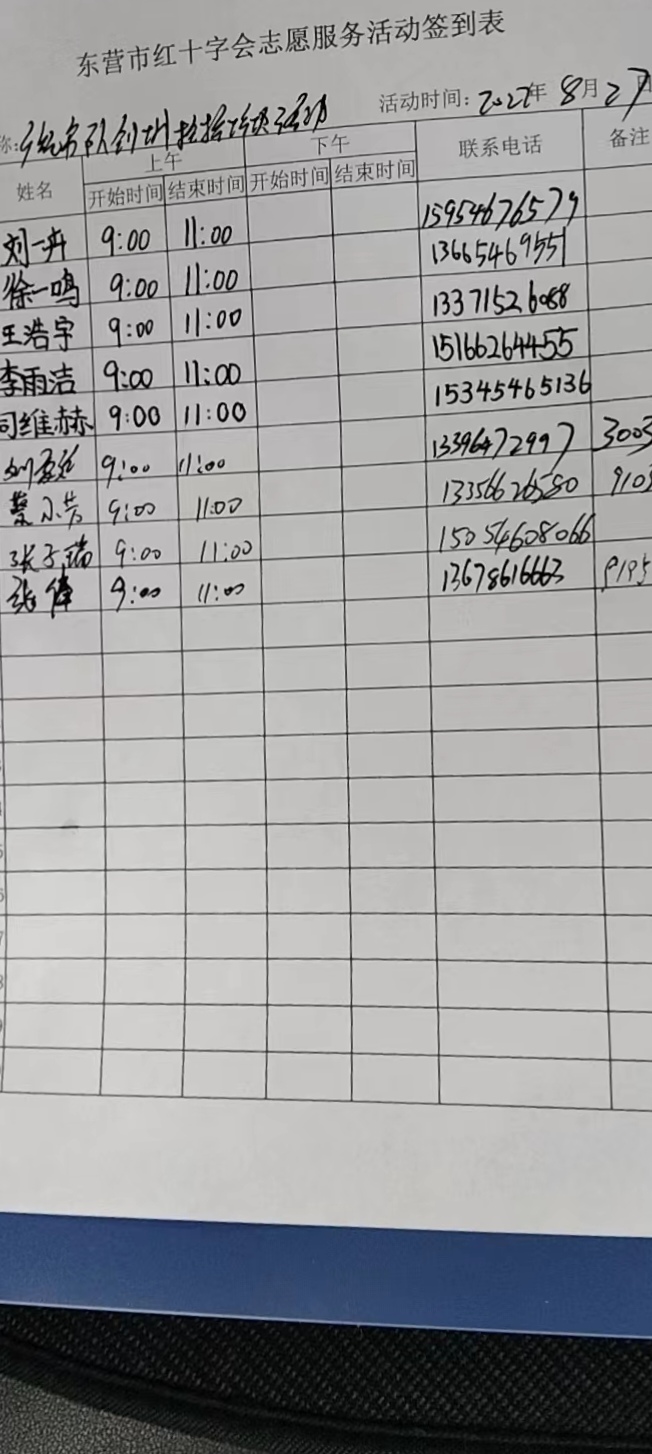 东营市红十字会志愿服务活动签到表
称: 活动时间: 2022年 8月27日
姓名 上午 下午 联系电话 备注
开始时间 结束时间 开始时间 结束时间
刘一卉 9:00 11:00 15954676579
徐一鸣 9:00 11:00 13665469551
王浩宇 9:00 11:00 13371526088
李雨洁 9:00 11:00 15166264455
司维赫 9:00 11:00 15345465136
9:00 11:00 13396472997 3003
蔡小芳 9:00 11:00 13356626580 910
张子瑞 9:00 11:00 15054608066
张伟 9:00 11:00 13678616663 9195